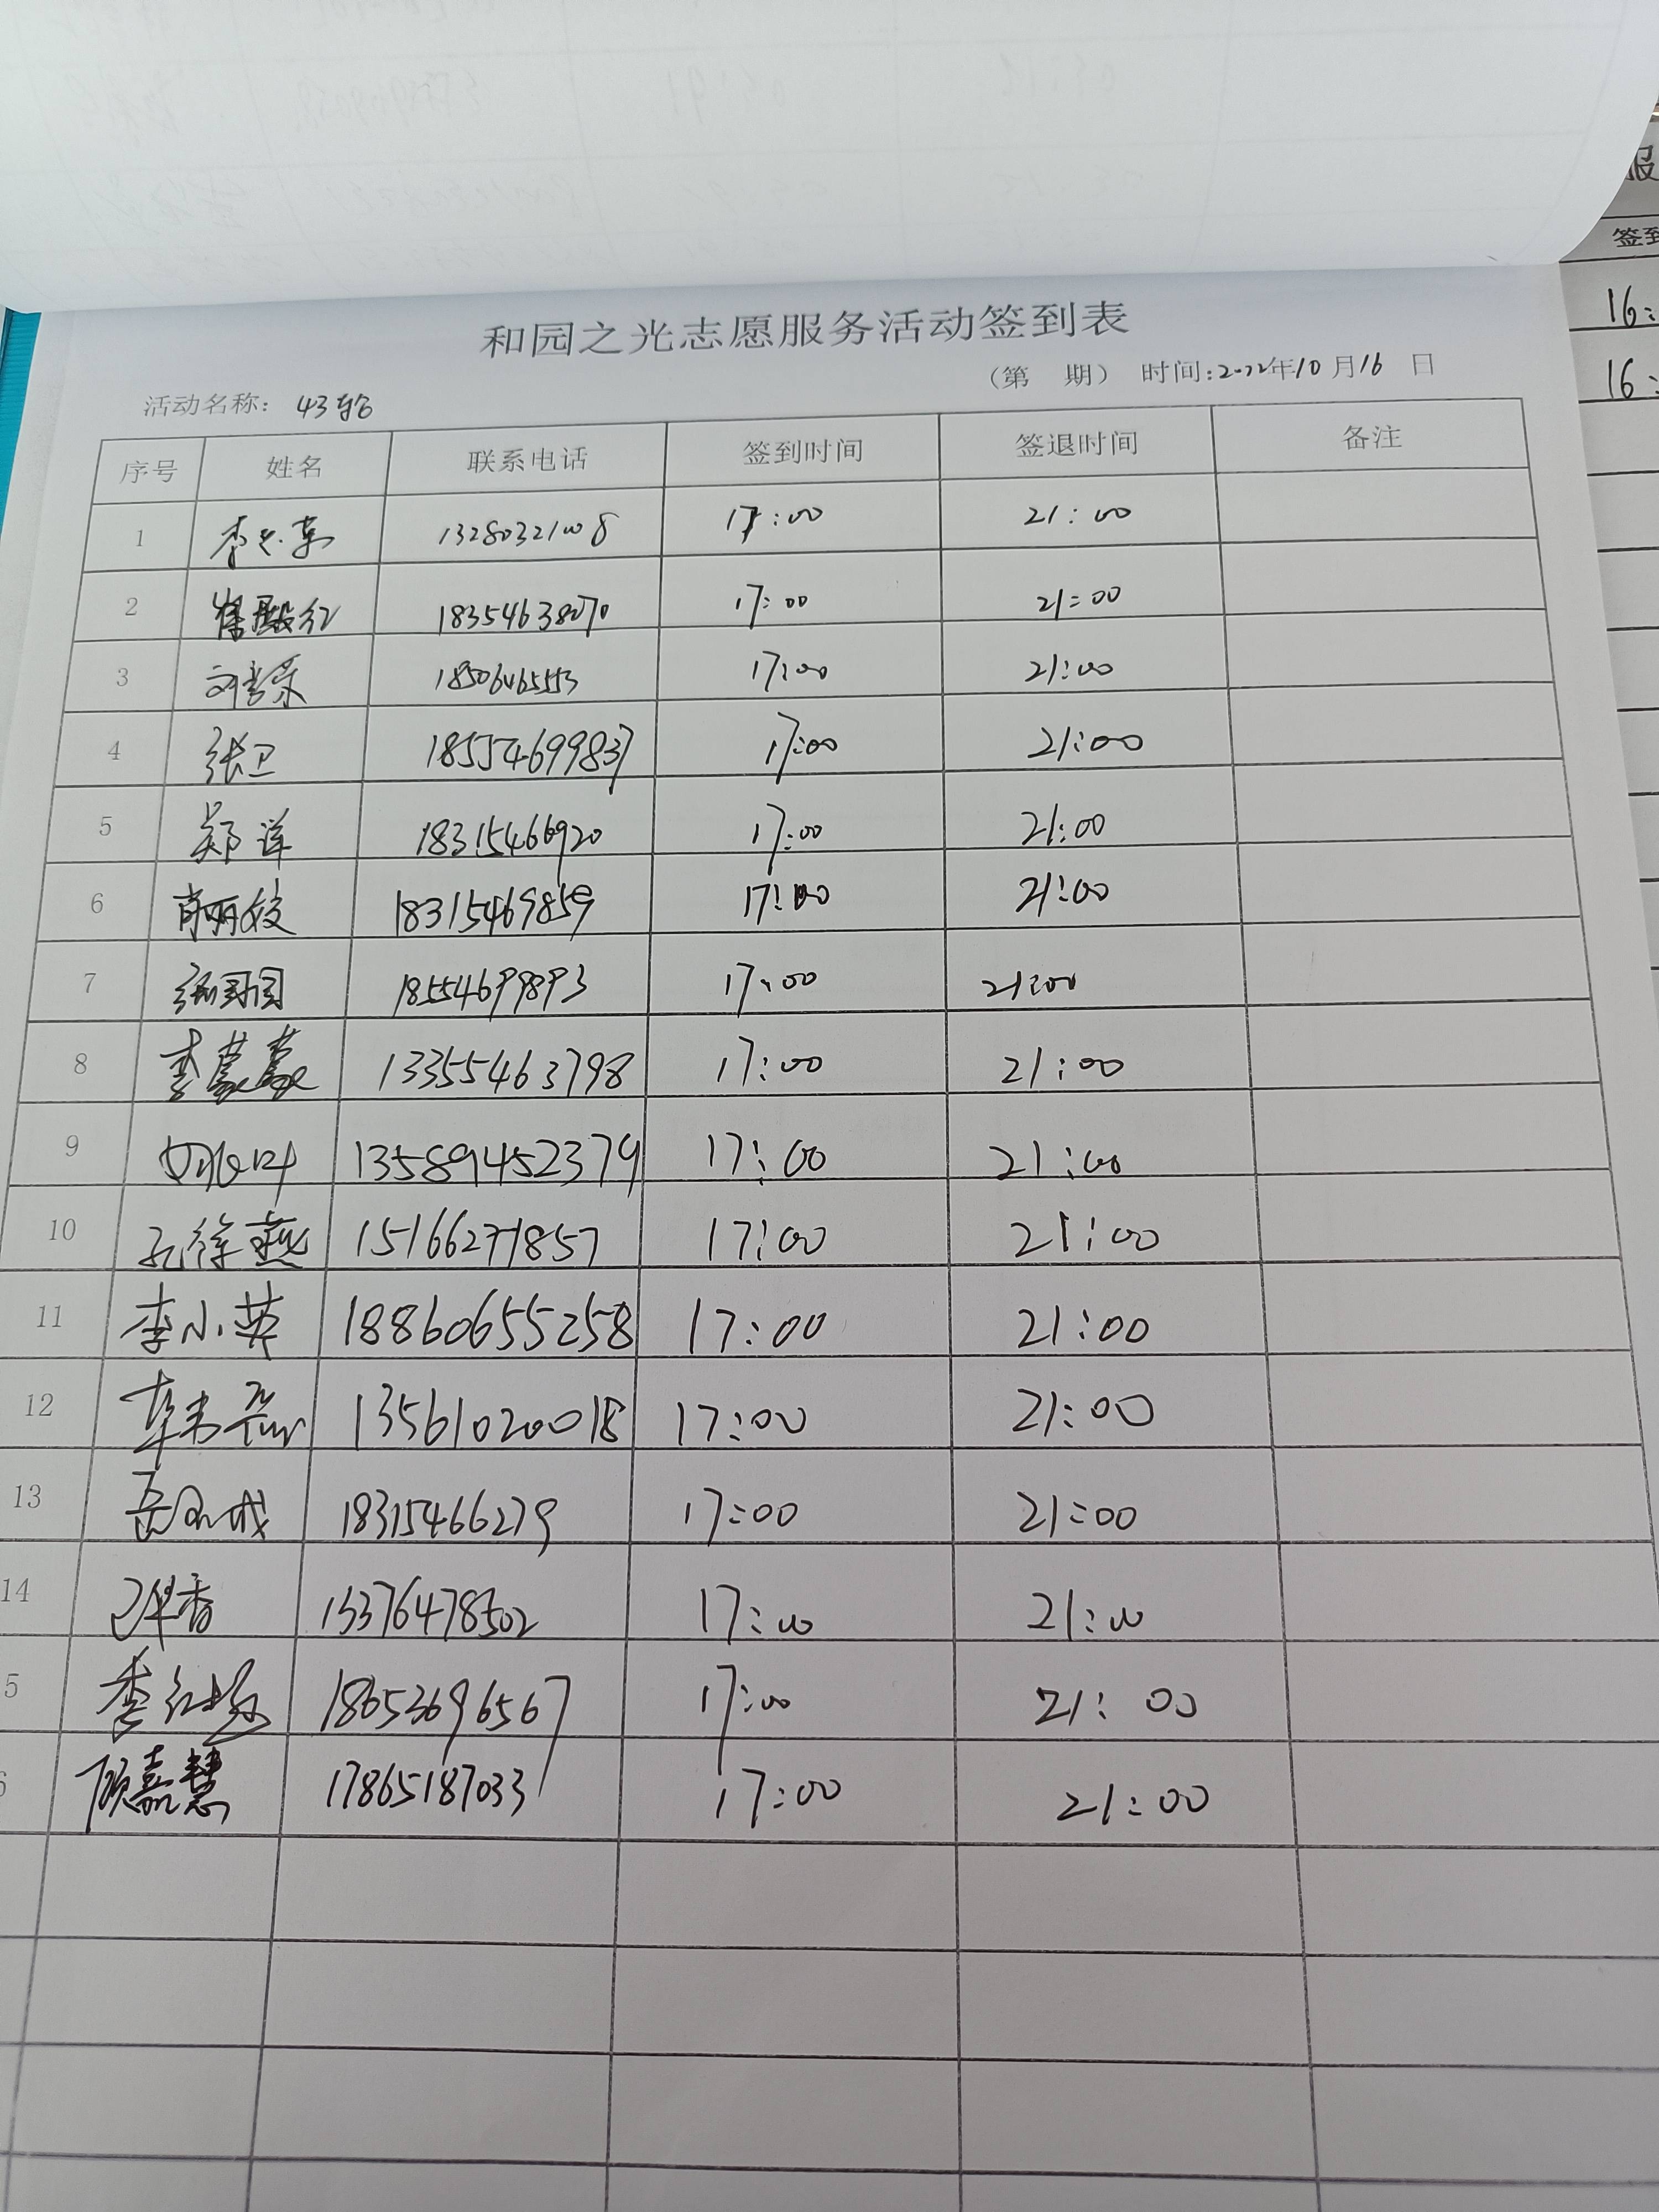 服
签到
16:
16:
和园之光志愿服务活动签到表
(第 期) 时间:2022年10月16日
活动名称: 43
序号 姓名 联系电话 签到时间 签退时间 备注
1 13280321008 17:00 21:00
2 18354638070 17:00 21:00
3 18506465553 17:00 21:00
4 张卫 18554699837 17:00 21:00
5 郑洋 18315466920 17:00 21:00
6 肖丽姣 18315469859 17:00 21:00
7 18554699893 17:00 21:00
8 李蒙蒙 13355463798 17:00 21:00
9 13589452379 17:00 21:00
10 孔徐燕 15166271857 17:00 21:00
11 李小英 18860655258 17:00 21:00
12 13561020018 17:00 21:00
13 18315466279 17:00 21:00
14 13376478502 17:00 21:00
5 18653696567 17:00 21:00
顾嘉慧 17865187033 17:00 21:00